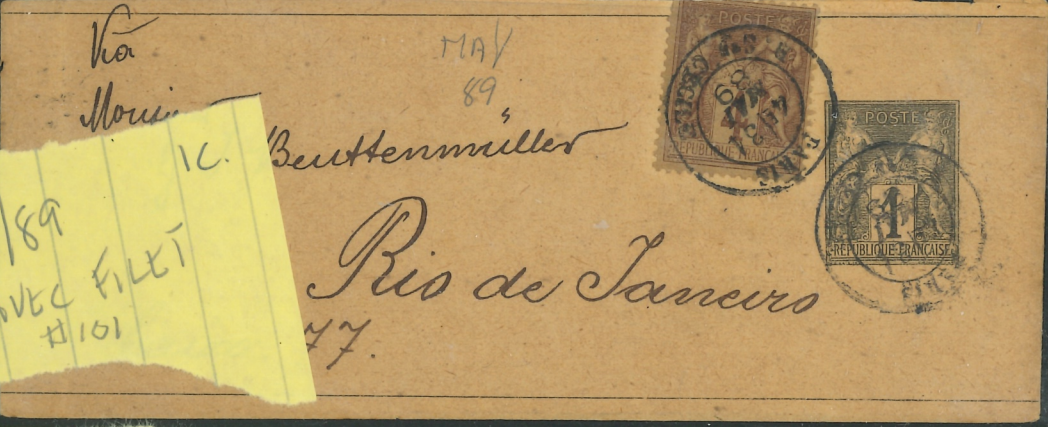 Via
MAY
89
Beuttenmüller
Rio de Janeiro
77.
1C.
/89
AVEC FILET
#101
POSTE
RÉPUBLIQUE FRANÇAISE
PARIS
MAI
89
POSTE
1
RÉPUBLIQUE FRANÇAISE